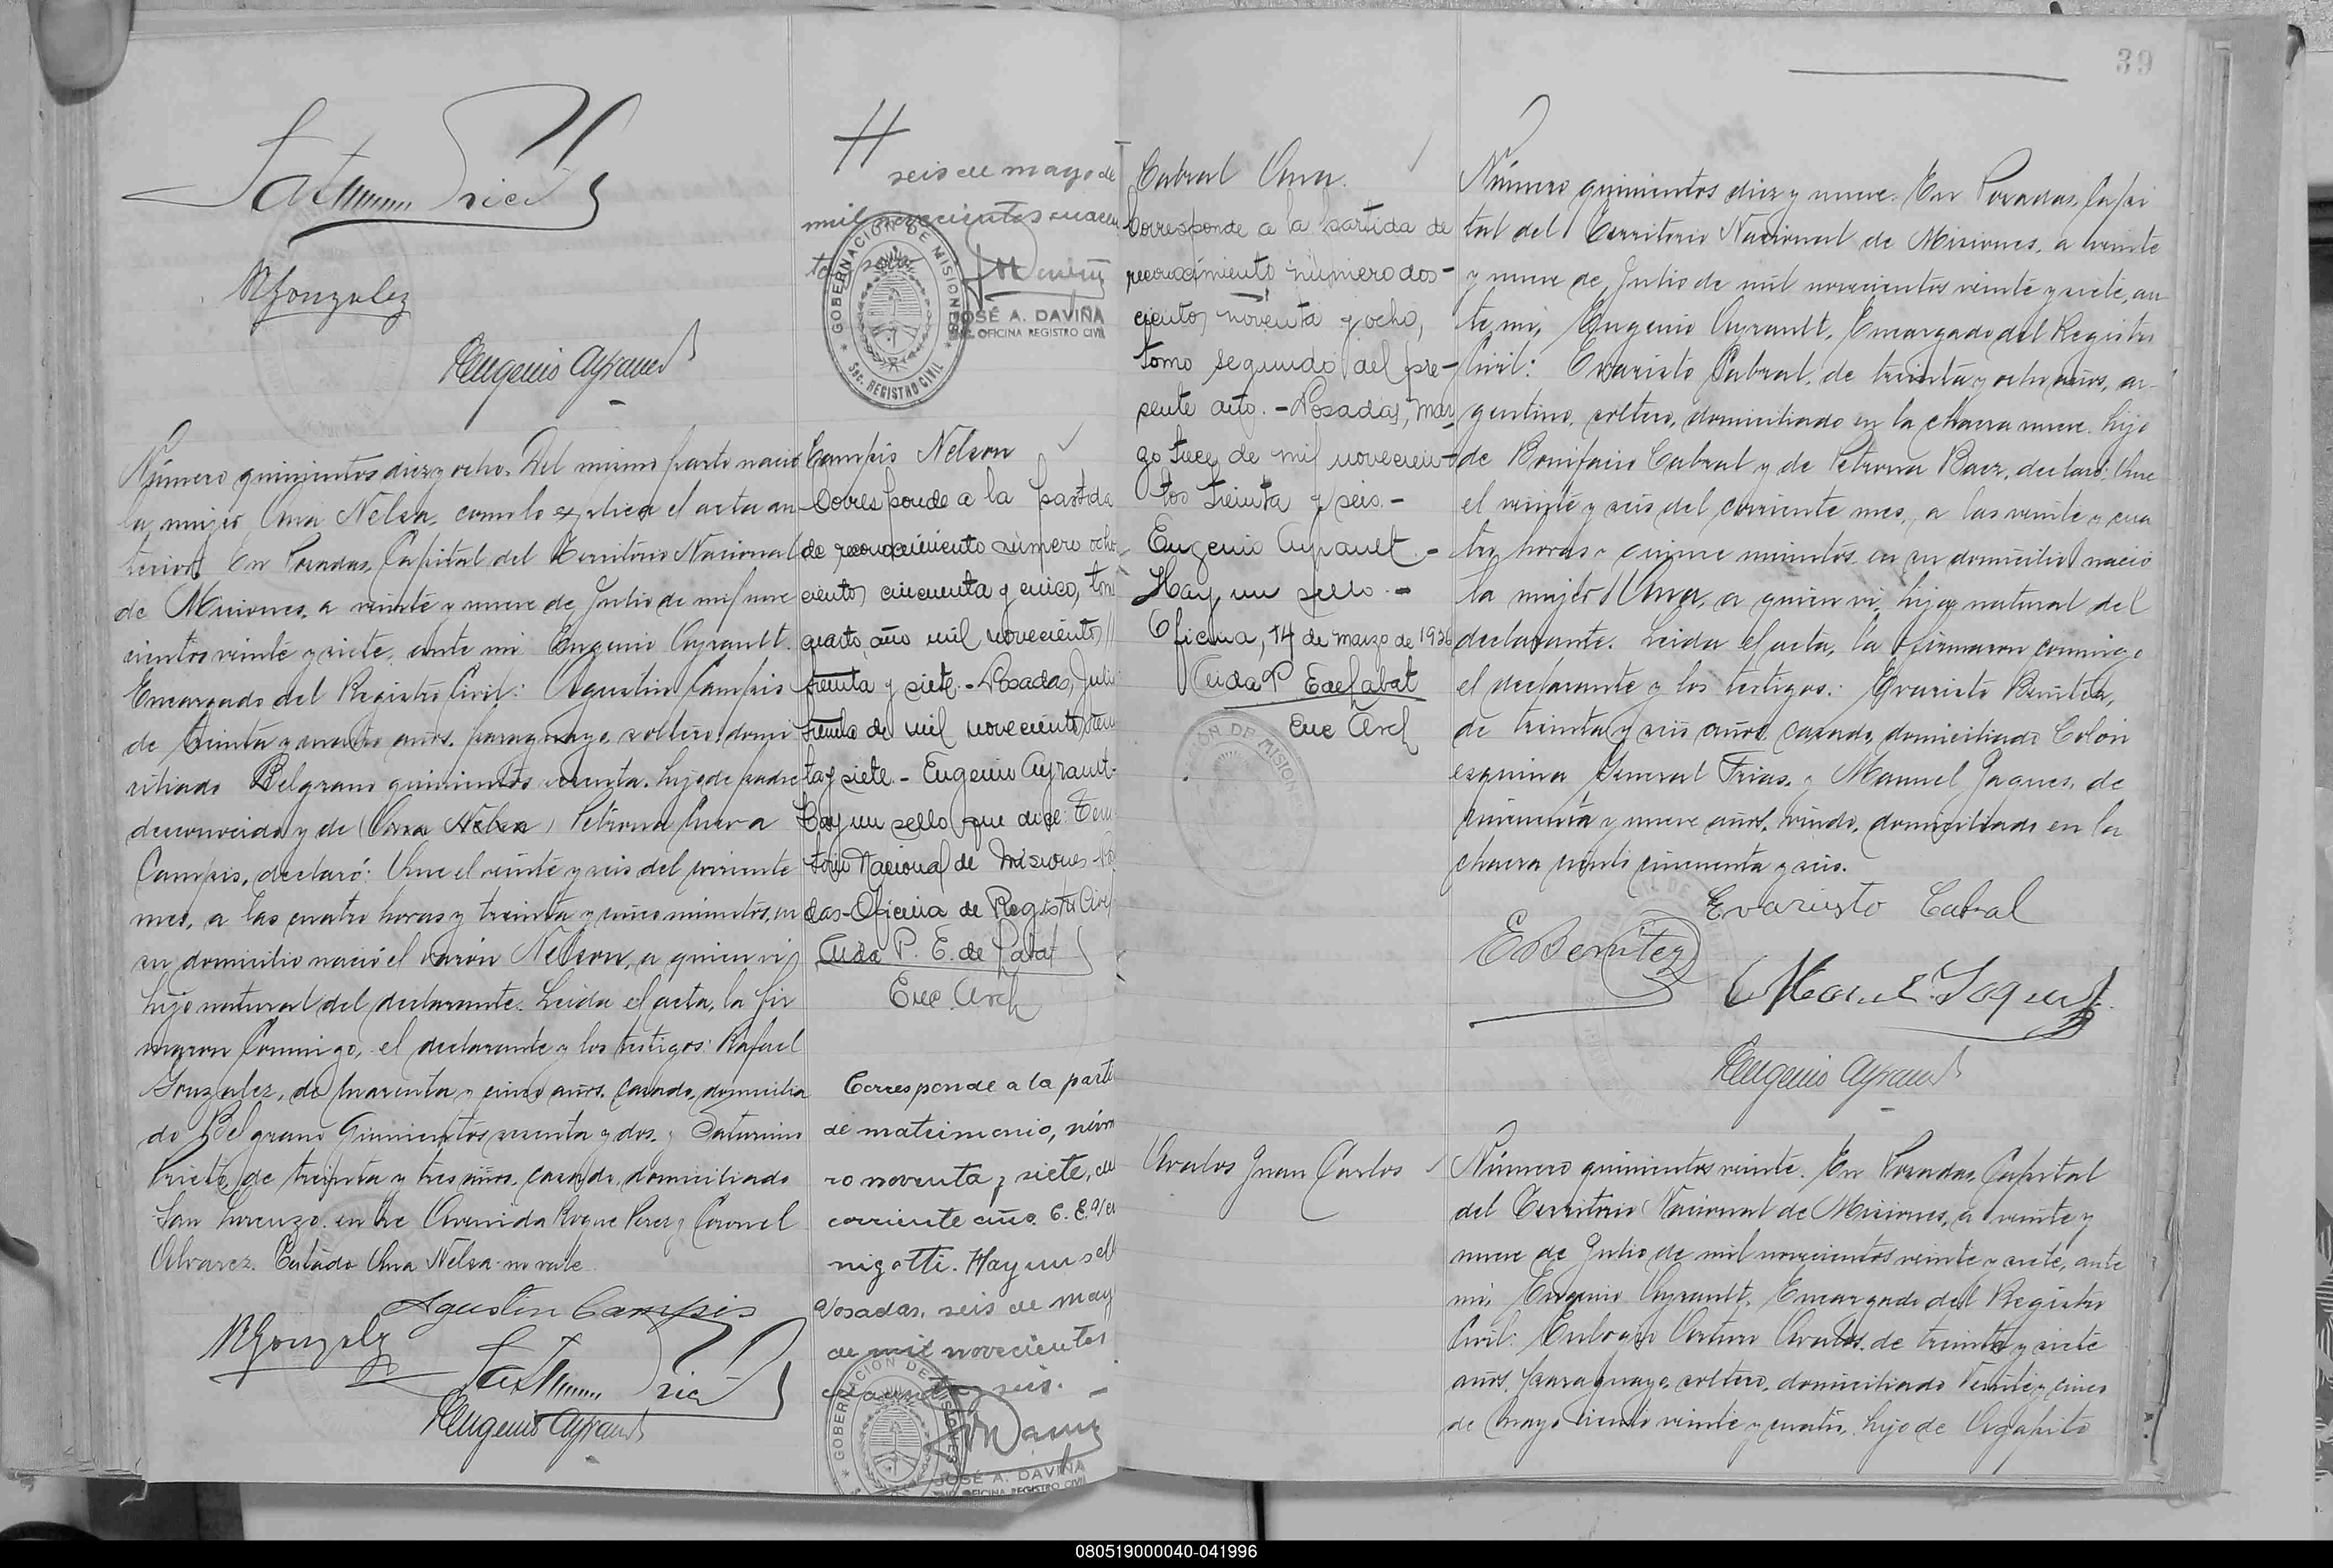 39
Saturnino Prieto
RGonzalez
Eugenio Ayrault
H
seis de mayo de
mil novecientos cuaren
ta y seis
GOBERNACIÓN DE MISIONES
Sec. REGISTRO CIVIL
JOSÉ A. DAVIÑA
ENC. OFICINA REGISTRO CIVIL
Campis Nelson
Corresponde a la partida
de reconocimiento número ocho
cientos cincuenta y cinco, tomo
cuarto, año mil novecientos
treinta y siete. - Posadas, Julio
treinta de mil novecientos trein
ta y siete. - Eugenio Ayrault -
Hay un sello que dice: Terri
torio Nacional de Misiones - Posa
das - Oficina de Registro Civil
Aida P. E. de Labat
Enc. Arch
Corresponde a la parti
de matrimonio, núme
ro noventa y siete, del
corriente año. C. E.
nigotti. Hay un sello
Posadas, seis de mayo
de mil novecientos
cuarenta y seis. -
GOBERNACIÓN DE MISIONES
JOSÉ A. DAVIÑA
ENC. OFICINA REGISTRO CIVIL
Número quinientos diez y ocho. Del mismo parto nació
la mujer Ana Nelsa, como lo explica el acta an
terior. En Posadas, Capital del Territorio Nacional
de Misiones, a veinte y nueve de Julio de mil nove
cientos veinte y siete, ante mi Eugenio Ayrault,
Encargado del Registro Civil: Agustin Campis
de treinta y cuatro años, paraguayo, soltero, domi
ciliado Belgrano quinientos sesenta, hijo de padre
desconocido y de (Ana Nelsa) Petrona Cuva
Campis, declaró: Que el veinte y seis del corriente
mes, a las cuatro horas y treinta y cinco minutos, en
su domicilio nació el varón Nelson, a quien vi
hijo natural del declarante. Leida el acta, la fir
maron conmigo, el declarante y los testigos: Rafael
Gonzalez, de cuarenta y cinco años, casado, domicilia
do Belgrano Quinientos sesenta y dos, y Saturnino
Prieto, de treinta y tres años, casado, domiciliado
San Lorenzo entre Avenida Roque Perez y Coronel
Alvarez. Testado Ana Nelsa no vale.
Agustin Campis
RGonzalez
Saturnino Prieto
Eugenio Ayrault
Cabral Ana.
Corresponde a la partida de
reconocimiento número dos -
cientos noventa y ocho,
tomo segundo del pre -
sente año. - Posadas, mar
zo trece de mil novecien -
tos treinta y seis. -
Eugenio Ayrault. -
Hay un sello. -
Oficina, 14 de marzo de 1936
Aida P E de Labat
Enc Arch
Número quinientos diez y nueve. En Posadas, Capi
tal del Territorio Nacional de Misiones, a veinte
y nueve de Julio de mil novecientos veinte y siete, an
te mi, Eugenio Ayrault, Encargado del Registro
Civil: Evaristo Cabral, de treinta y ocho años, ar-
gentino, soltero, domiciliado en la chacra nueve, hijo
de Bonifacio Cabral y de Petrona Baez, declaró: Que
el veinte y seis del corriente mes, a las veinte y cua
tro horas y quince minutos en su domicilio nació
la mujer Ana, a quien vi, hija natural del
declarante. Leida el acta, la firmaron conmigo
el declarante y los testigos: Evaristo Benitez,
de treinta y seis años, casado, domiciliado Colón
esquina General Frias, y Manuel Jaques, de
cincuenta y nueve años, viudo, domiciliado en la
chacra ciento cincuenta y seis.
Evaristo Cabral
EBenitez
Manuel Jaques
Eugenio Ayrault
Avalos Juan Carlos
Número quinientos veinte. En Posadas, Capital
del Territorio Nacional de Misiones, a veinte y
nueve de Julio de mil novecientos veinte y siete, ante
mi, Eugenio Ayrault, Encargado del Registro
Civil: Eulogio Arturo Avalos, de treinta y siete
años, paraguayo, soltero, domiciliado Veinte y cinco
de Mayo ciento veinte y cuatro, hijo de Agapito
080519000040-041996